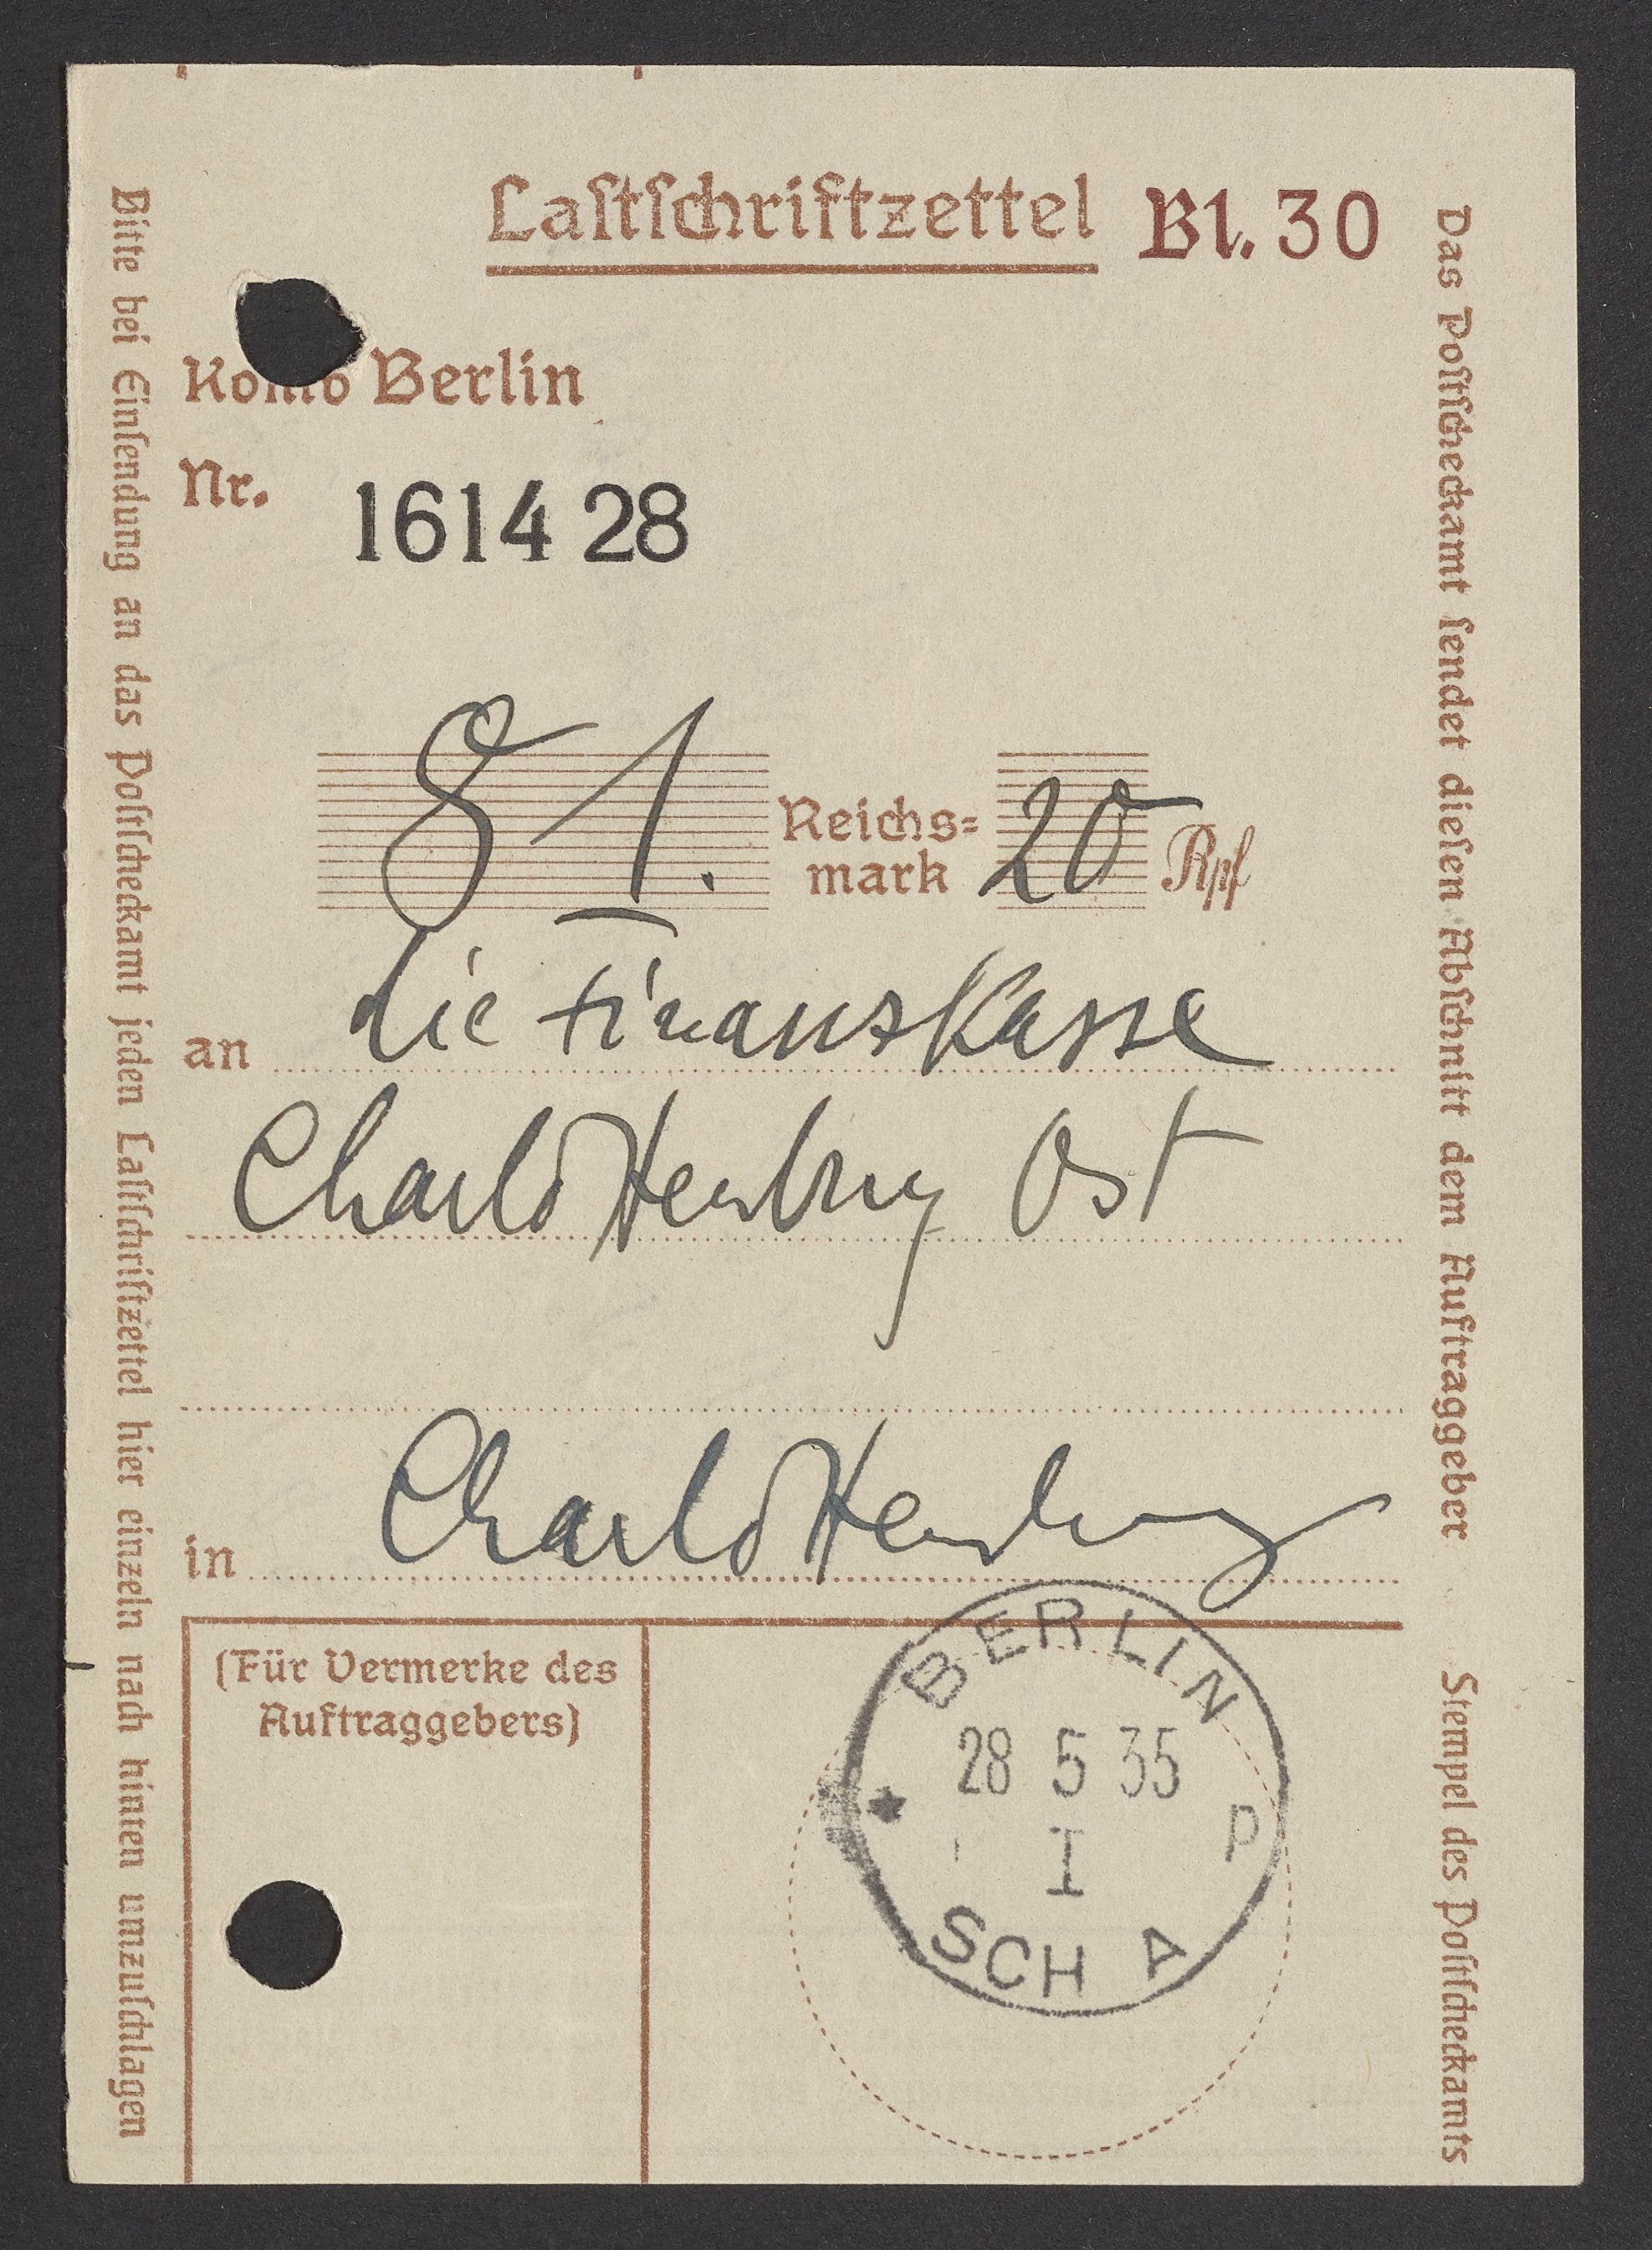 Lastschriftzettel Bl. 30
Konto Berlin
Nr. 1614 28
81. Reichs=
mark 20 Rpf
an die Finanzkasse
Charlottenburg Ost
in Charlottenburg
(Für Vermerke des
Auftraggebers)
BERLIN
28 5 35
I
P SCH A
Bitte bei Einsendung an das Postscheckamt jeden Lastschriftzettel hier einzeln nach hinten umzuschlagen
Das Postscheckamt sendet diesen Abschnitt dem Auftraggeber
Stempel des Postscheckamts